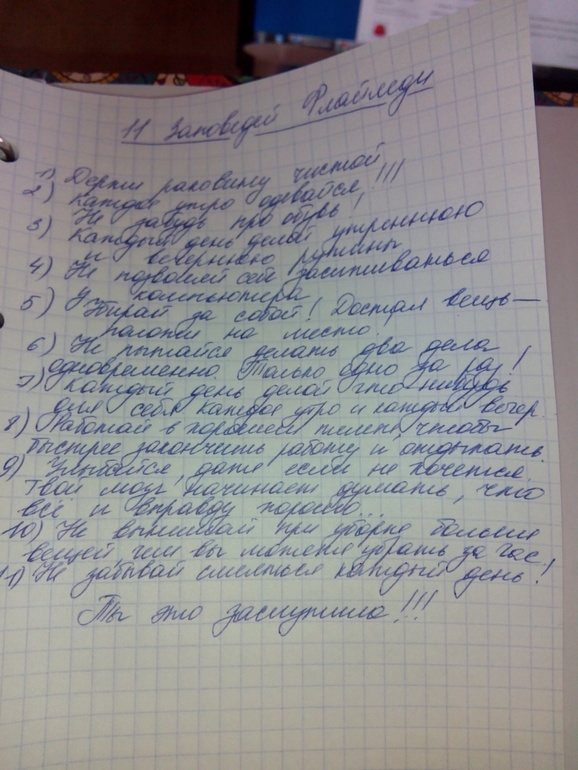 11 Заповедей Флайледи
1) Держи раковину чистой
2) Каждое утро одевайся!!!
Не забудь про обувь!
3) Каждый день делай утреннюю
и вечернюю рутины
4) Не позволяй себе засиживаться
у компьютера
5) Убирай за собой! Достал вещь —
положи на место!
6) Не пытайся делать два дела
одновременно. Только одно за раз!
7) Каждый день делай что-нибудь
для себя каждое утро и каждый вечер.
8) Работай в хорошем темпе, чтобы
быстрее закончить работу и отдыхать.
9) Улыбайся, даже если не хочется.
Твой мозг начинает думать, что
всё и вправду хорошо...
10) Не вынимай при уборке больше
вещей, чем вы можете убрать за час.
11) Не забывай смеяться каждый день!
Ты это заслужила!!!